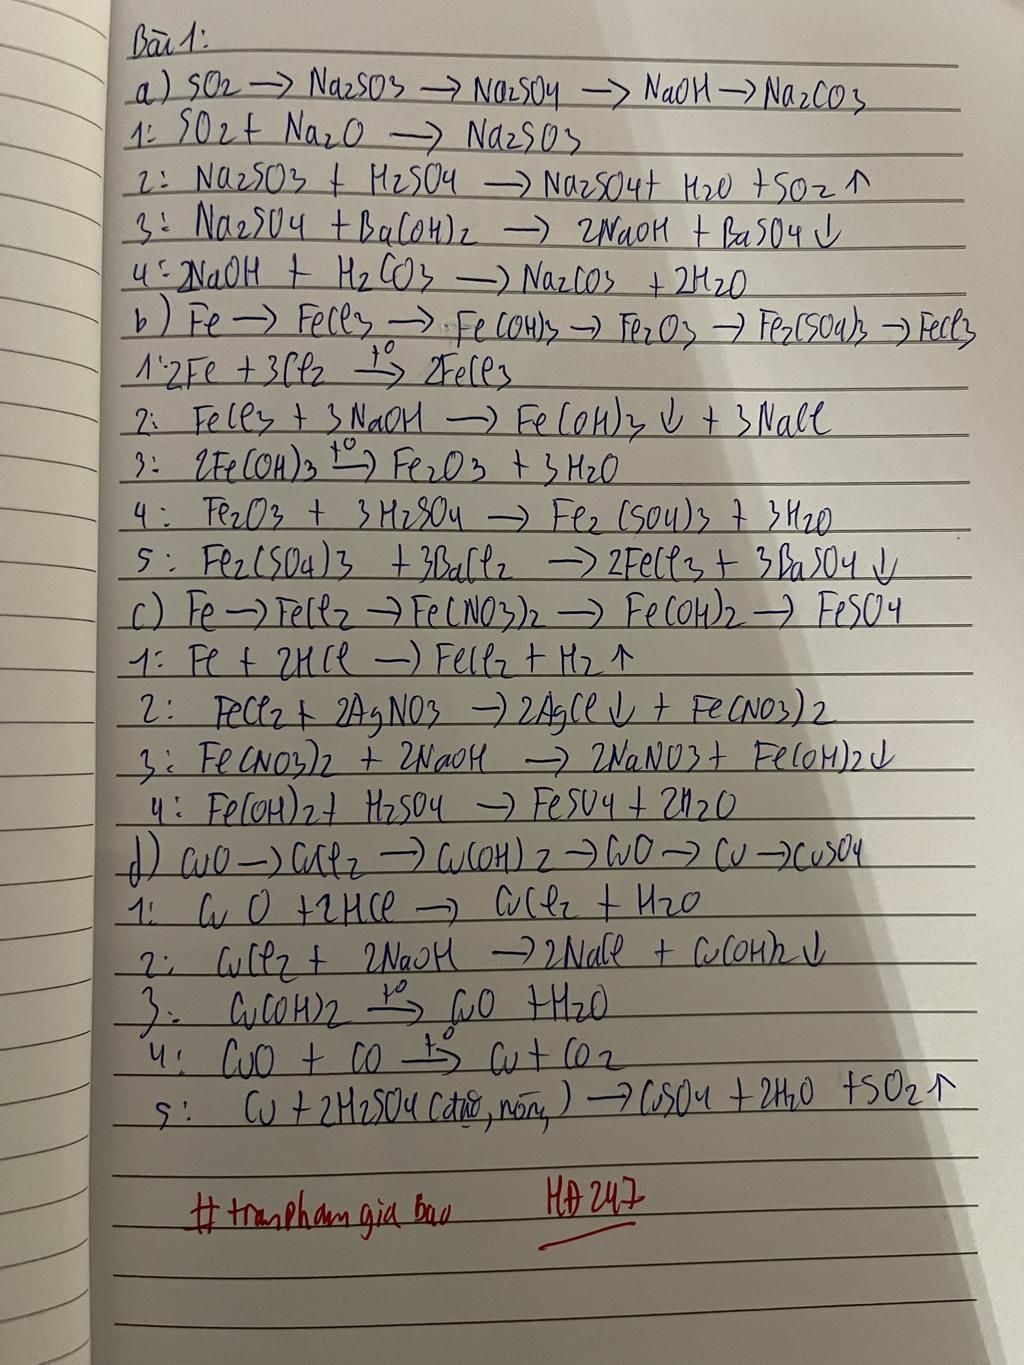 Bài 1:
a) SO2 → Na2SO3 → Na2SO4 → NaOH → Na2CO3
1: SO2 + Na2O → Na2SO3
2: Na2SO3 + H2SO4 → Na2SO4 + H2O + SO2 ↑
3: Na2SO4 + Ba(OH)2 → 2NaOH + BaSO4 ↓
4: 2NaOH + H2CO3 → Na2CO3 + 2H2O
b) Fe → FeCl3 → Fe(OH)3 → Fe2O3 → Fe2(SO4)3 → FeCl3
1: 2Fe + 3Cl2 –t°→ 2FeCl3
2: FeCl3 + 3NaOH → Fe(OH)3 ↓ + 3NaCl
3: 2Fe(OH)3 –t°→ Fe2O3 + 3H2O
4: Fe2O3 + 3H2SO4 → Fe2(SO4)3 + 3H2O
5: Fe2(SO4)3 + 3BaCl2 → 2FeCl3 + 3BaSO4 ↓
c) Fe → FeCl2 → Fe(NO3)2 → Fe(OH)2 → FeSO4
1: Fe + 2HCl → FeCl2 + H2 ↑
2: FeCl2 + 2AgNO3 → 2AgCl ↓ + Fe(NO3)2
3: Fe(NO3)2 + 2NaOH → 2NaNO3 + Fe(OH)2 ↓
4: Fe(OH)2 + H2SO4 → FeSO4 + 2H2O
d) CuO → CuCl2 → Cu(OH)2 → CuO → Cu → CuSO4
1: CuO + 2HCl → CuCl2 + H2O
2: CuCl2 + 2NaOH → 2NaCl + Cu(OH)2 ↓
3: Cu(OH)2 –t°→ CuO + H2O
4: CuO + CO –t°→ Cu + CO2
5: Cu + 2H2SO4 (đặc, nóng) → CuSO4 + 2H2O + SO2 ↑
#tranphamgiabao HĐ247